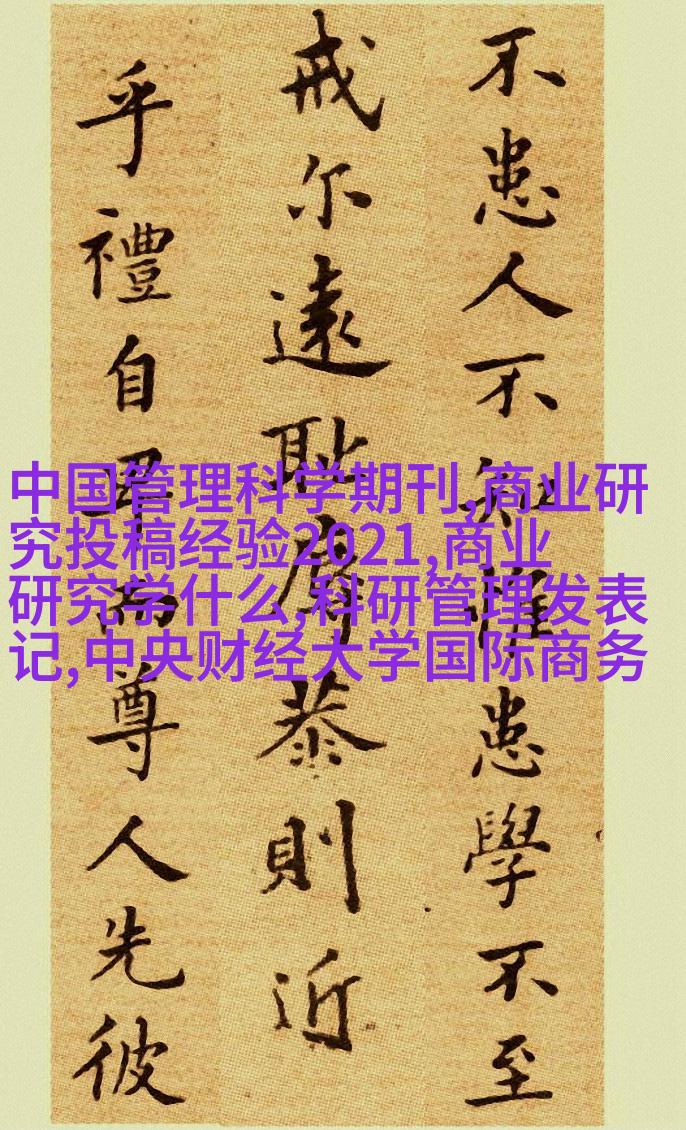 不患人不知惟患學不至
戒尔遠耻辱恭則近
乎禮自卑而尊人先彼
中国管理科学期刊,商业研
究投稿经验2021,商业
研究学什么,科研管理发表
记,中央财经大学国际商务